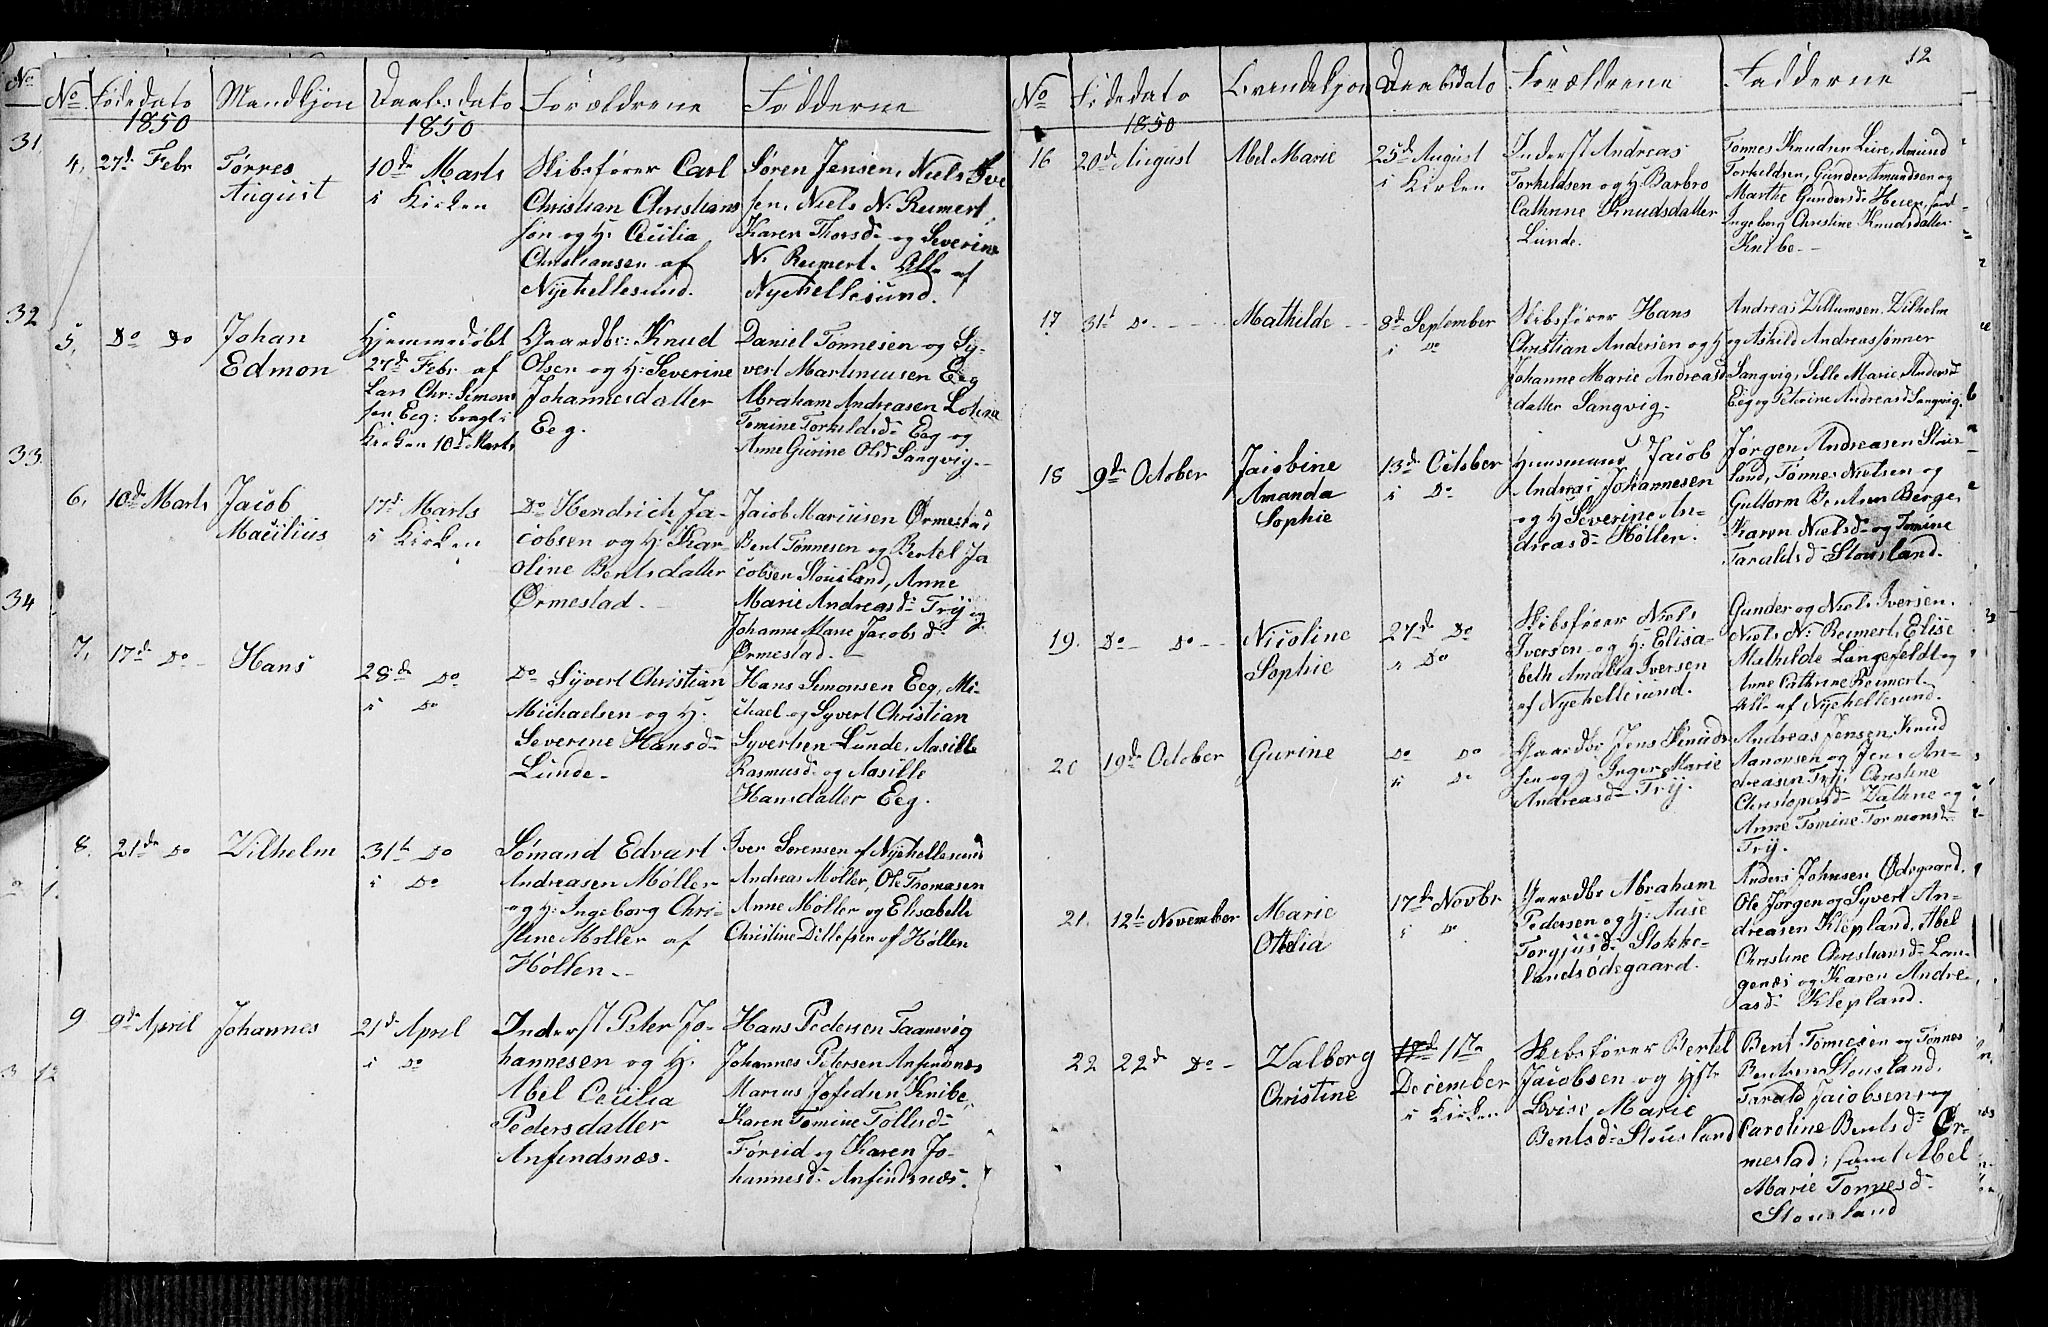 No Fødedato Mandkjøn Daabsdato Forældrene Fadderne
1850 1850
4, 27de Febr Tørres August 10de Marts i Kirken
Skibsfører Carl
Christian Christians
sen og H: Cecilia
Christiansen af
Nyehellesund.
Søren Jensen, Niels Ive
sen, Niels N. Reimert,
Karen Thorsd: og Severine
N. Reimert. Alle af
Nyehellesund.
5, Do Do Johan Edmon
Hjemmedøbt
27de Febr af
Lars Chr: Simon
sen Eeg: bragt i
Kirken 10de Marts
Gaardbr: Knud
Olsen og H: Severine
Johannesdatter
Eeg.
Daniel Tønnesen og Sy-
vert Martinusen Eeg
Abraham Andreasen
Tomine Torkildsd: Eeg og
Anne Gurine Olsd Sangvig.
6, 10de Marts Jacob 17de Marts i Kirken
Do Hendrich Ja-
cobsen og H: Kar-
oline Bentsdatter
Ørmestad.
Jacob Mariusen Ørmestad
Bent Tønnesen og Bertel Ja
cobsen Stousland, Anne
Marie Andreasd: Trÿ og
Johanne Marie Jacobsd:
Ørmestad.
7, 17de Do Hans 28de Do i Do
Do Syvert Christian
Michaelsen og H.
Severine Hansd:
Lunde.
Hans Simonsen Eeg, Mi-
chael og Syvert Christian
Syvertsen Lunde, Aasille
Rasmusd: og Aasille
Hansdatter Eeg.
8. 21de Do Vilhelm 31te Do i Do
Sømand Edvart
Andreasen Møller
og H: Ingeborg Chri-
stine Møller af
Høllen.
Iver Sørensen af Nyehellesund
Andreas Møller, Ole Thomasen
Anne Møller og Elisabeth
Christine Ditlefsen af Høllen
9 9de April Johannes 21de April i Do
Inderst Peter Jo-
hannesen og H.
Abel Cecilia
Pedersdatter
Anfindsnæs.
Hans Pedersen Taanevig
Johannes Petersen Anfindsnæs
Marius Jofedsen Knibe,
Karen Tomine Tollisd:
Føreid og Karen Jo-
hannesd: Anfindsnæs.
31.
32
33
34
12
No Fødedato Qvindekjøn Daabsdato Forældrene Fadderne
1850
16 20de August Abel Marie 25de August i Kirken
Inderst Andreas
Torkildsen og H. Barbro
Cathrine Knudsdatter
Lunde.
Tønnes Knudsen Leire, Amund
Torkildsen, Gunder Amundsen og
Marthe Gundersd: samt
Ingeborg Christine Knudsdatter
Knibe.
17 31te Do Mathilde 8de September i Do
Skibsfører Hans
Christian Andersen og H
Johanne Marie Andreas
datter Sangvig.
Andreas Villumsen, Vilhelm
og Askild Andreassønner
Sangvig, Sille Marie Andersd
Eeg og Petrine Andreasd Sangvig.
18 9de October Jacobine Amanda Sophie 13de October i Do
Huusmand Jacob
Andreas Johannesen
og H Severine An-
dreasd: Høllen.
Jørgen Andreasen Stous
land, Tønnes Nielsen og
Guttorm Bentsen Berge,
Karen Nielsd: og Tomine
Taraldsd Stousland.
19. Do Do Nicoline Sophie 27de Do i Do
Skibsfører Niels
Iversen og H: Elisa-
beth Amalia Iversen
af Nyehellesund.
Gunder og Niels Iversen.
Niels N. Reimert, Elise
Mathilde Langefeldt og
Anne Cathrine Reimert
Alle af Nyehellesund.
20 19de October Gurine Do Do i Do
Gaardbr Jens Knud
sen og H Inger Marie
Andreasd: Trÿ.
Andreas Jensen, Knud
Aanonsen og Jens An-
dreasen Trÿ, Christine
Christophersd: Vatne og
Anne Tomine Tormonsd:
Trÿ.
21. 12te November Marie Othelia 17de Novbr i Do
Gaardbr Abraham
Pedersen og H: Aase
Torgjusd: Stokke-
landsødegaard.
Anders Johnsen Ødegaard,
Ole Jørgen og Syvert An-
dreasen Klepland, Abel
Christine Christiansd: Lan-
genæs og Karen Andre-
asd: Klepland.
22 22de Do Valborg Christine 17de
December
i Kirken
Skibsfører Bertel
Jacobsen og Hstr
Lovise Marie
Bentsd: Stousland
Bent Tønnesen og Tønnes
Bentsen Stousland,
Tarald Jacobsen, og
Caroline Bentsd: Ør-
mestad; samt Abel
Marie Tønnesd:
Stousland